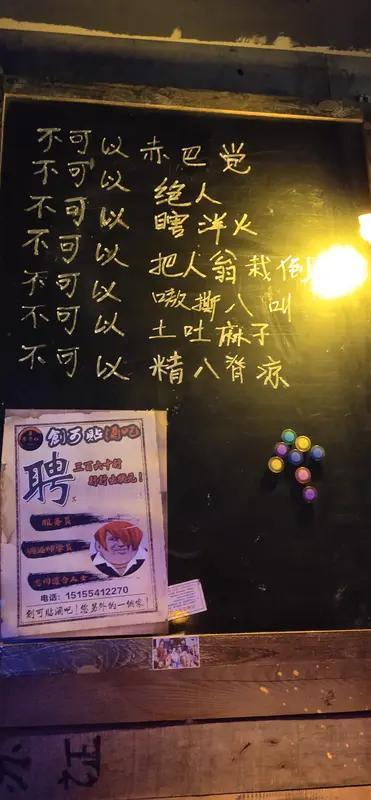 不可以 赤巴觉
不可以 绝人
不可以 瞎洋火
不可以 把人翁栽倒
不可以 嗷撕八叫
不可以 土吐麻子
不可以 精八脊凉
创可贴酒吧
聘
三百六十行
行行出状元！
服务员
调酒师学员
志同道合人士
电话：15155412270
创可贴酒吧！您另外的一个家！